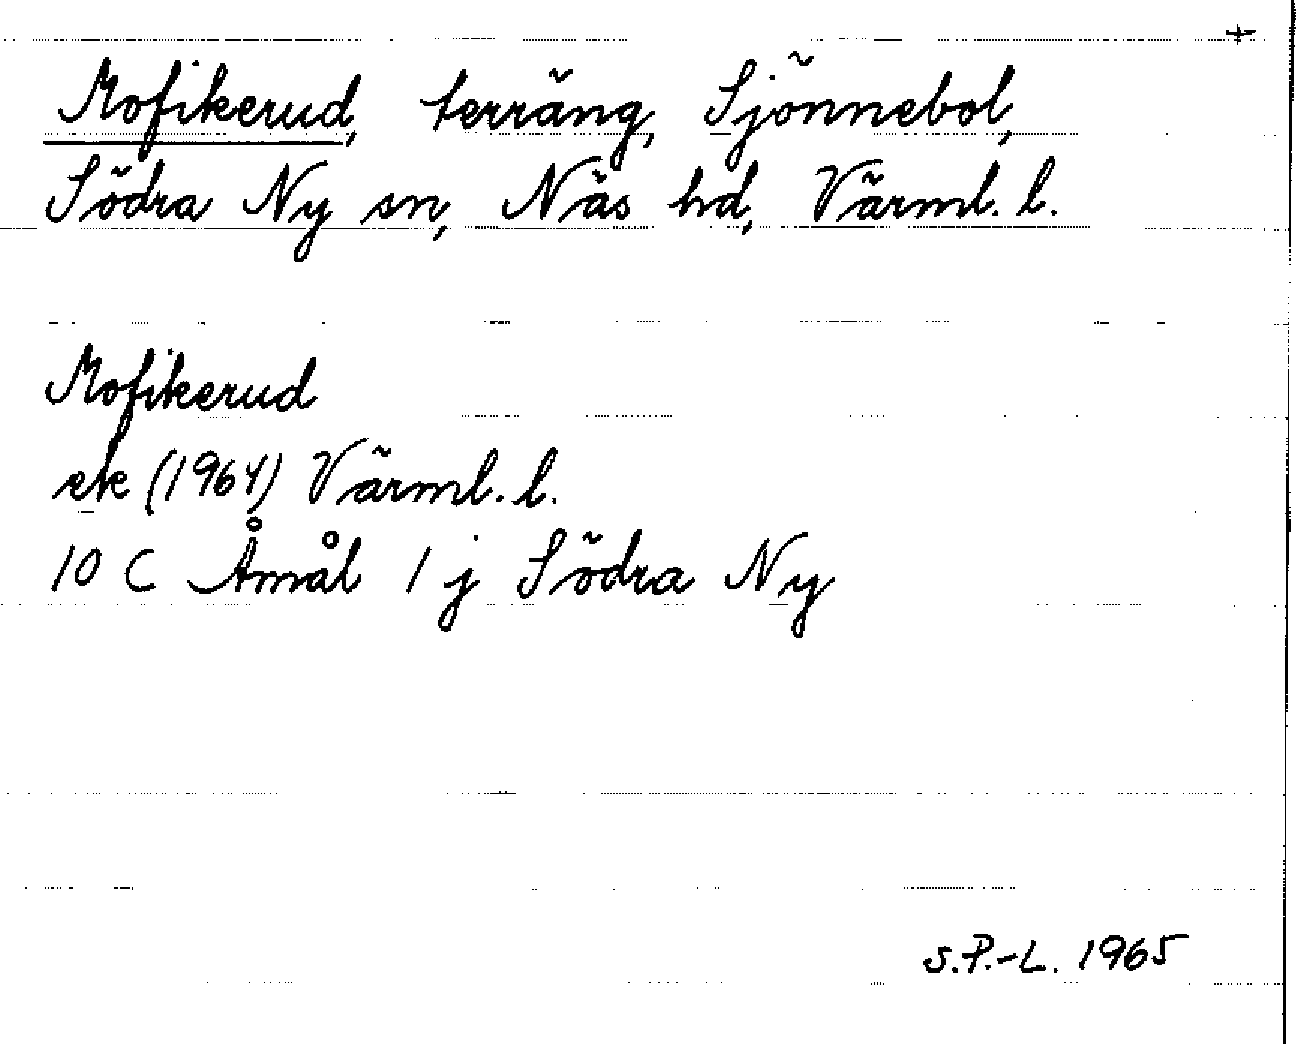 +
Mofikerud, terräng, Sjönnebol,
Södra Ny sn, Näs hd, Värml. l.
Mofikerud
ek (1964) Värml. l.
10 C Åmål 1 j Södra Ny
S.P.-L. 1965